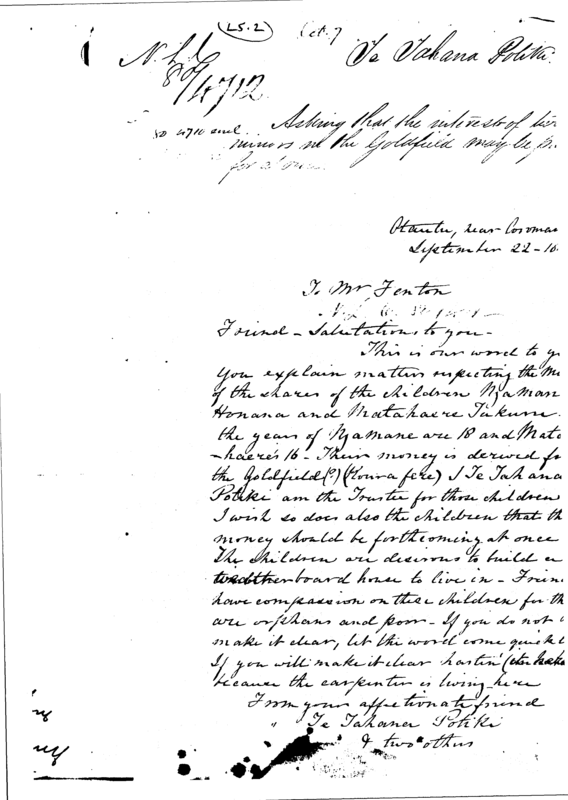 (LS.2)
Te Tahana Potiki
N.L.
80/4712
80 4710 encl. Asking that the interests of
minors in the Goldfield may be
for
near Coroman
September 22-
To Mr Fenton
Friend - Salutations to you -
This is our word to
you explain matters respecting the
of the shares of the children Ngaman
Honana and Matahaere Tukum
the years of Ngamane are 18 and Mata
-haere's 16 - Their money is derived
the Goldfield (?) I Te Tahana
Potiki am the Trustee for those children
I wish so does also the children that th
money should be forthcoming at once
The children are desirous to build
board house to live in - Frien
have compassion on these children for th
are orphans and poor - If you do not
make it clear, let the word come quick
If you will make it clear hasten
because the carpenter is living here
From your affectionate friend
" Te Tahana Potiki
& two others